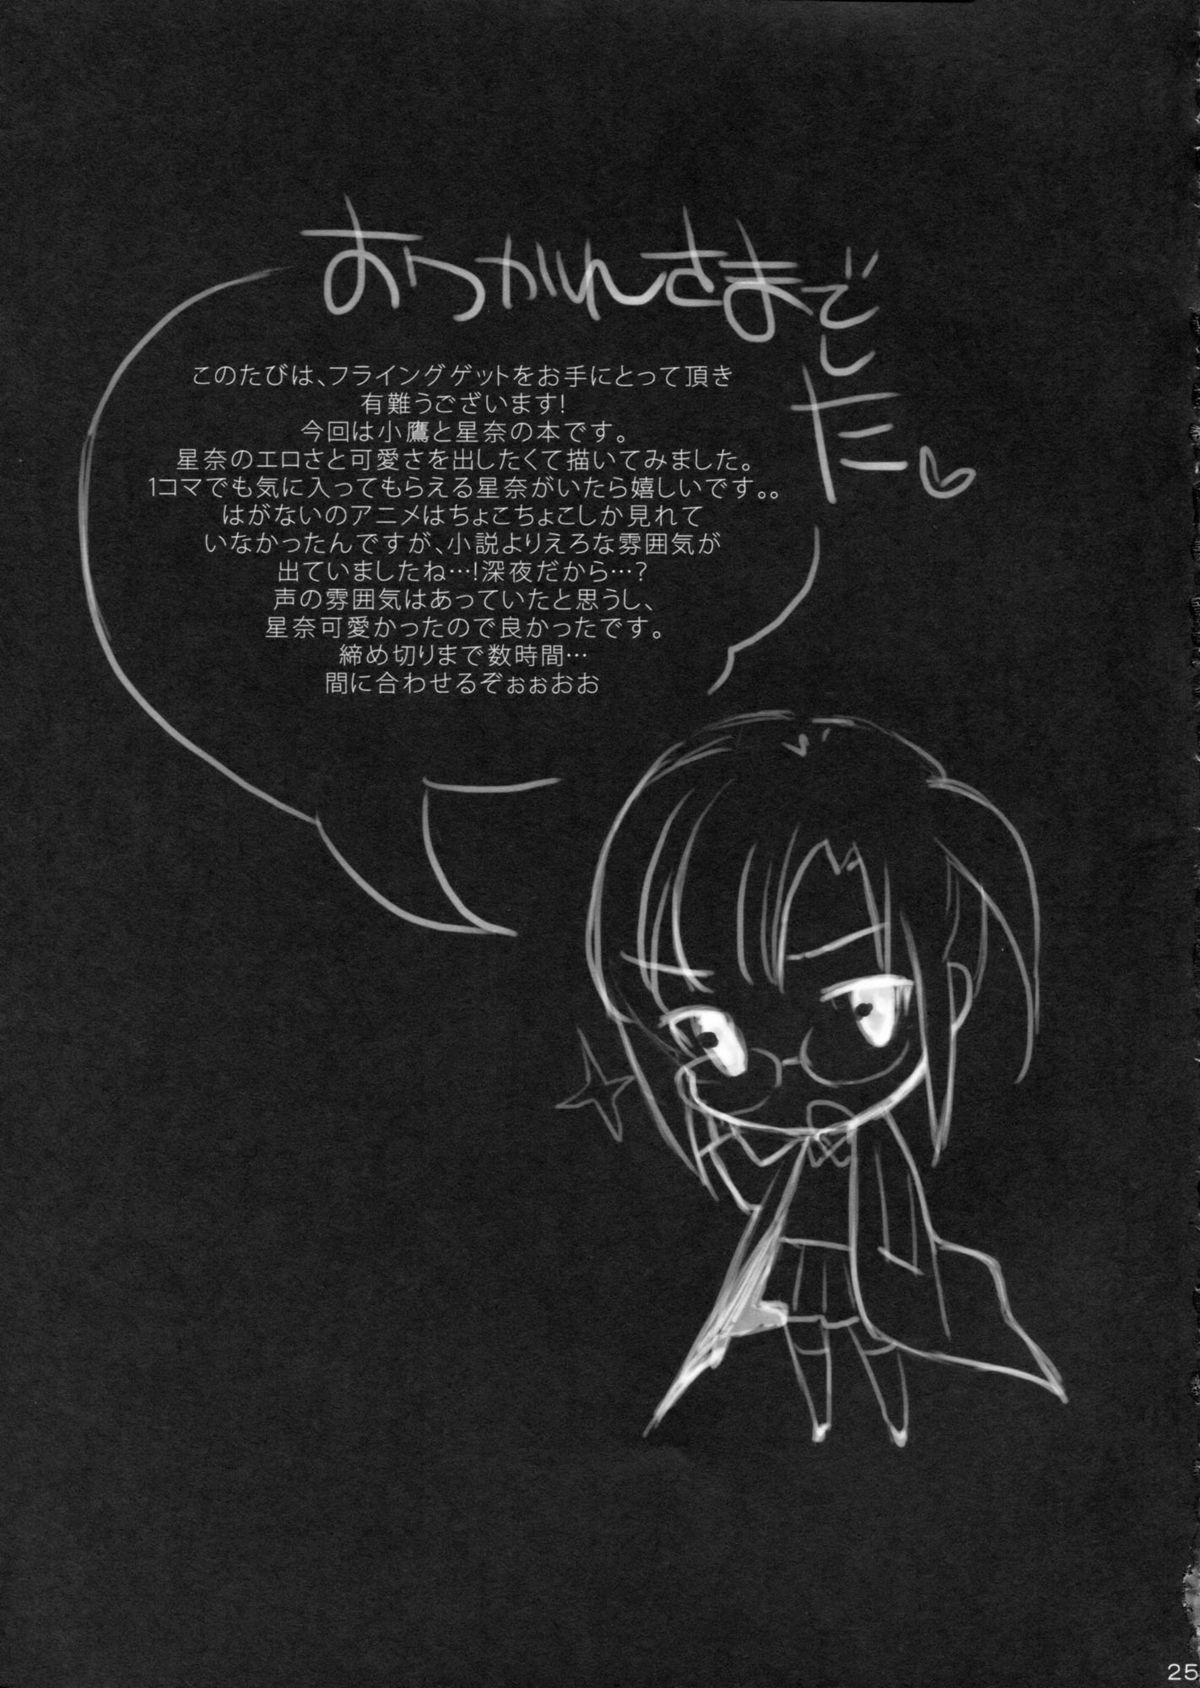 おつかれさまでした♡
このたびは、フライングゲットをお手にとって頂き
有難うございます!
今回は小鷹と星奈の本です。
星奈のエロさと可愛さを出したくて描いてみました。
1コマでも気に入ってもらえる星奈がいたら嬉しいです。。
はがないのアニメはちょこちょこしか見れて
いなかったんですが、小説よりえろな雰囲気が
出ていましたね…!深夜だから…?
声の雰囲気はあっていたと思うし、
星奈可愛かったので良かったです。
締め切りまで数時間…
間に合わせるぞぉぉおお
25